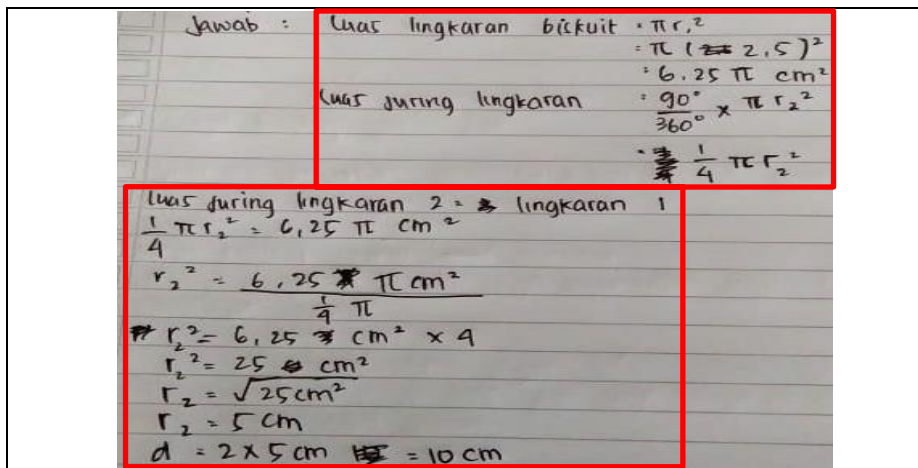 Jawab : Luas lingkaran biskuit = πr₁²
= π ( 2,5)²
= 6,25 π cm²
Luas juring lingkaran = 90°/360° × π r₂²
= 1/4 π r₂²
Luas juring lingkaran 2 = lingkaran 1
1/4 π r₂² = 6,25 π cm²
r₂² = 6,25 π cm² / 1/4 π
r₂² = 6,25 cm² × 4
r₂² = 25 cm²
r₂ = √25cm²
r₂ = 5 cm
d = 2 × 5 cm = 10 cm